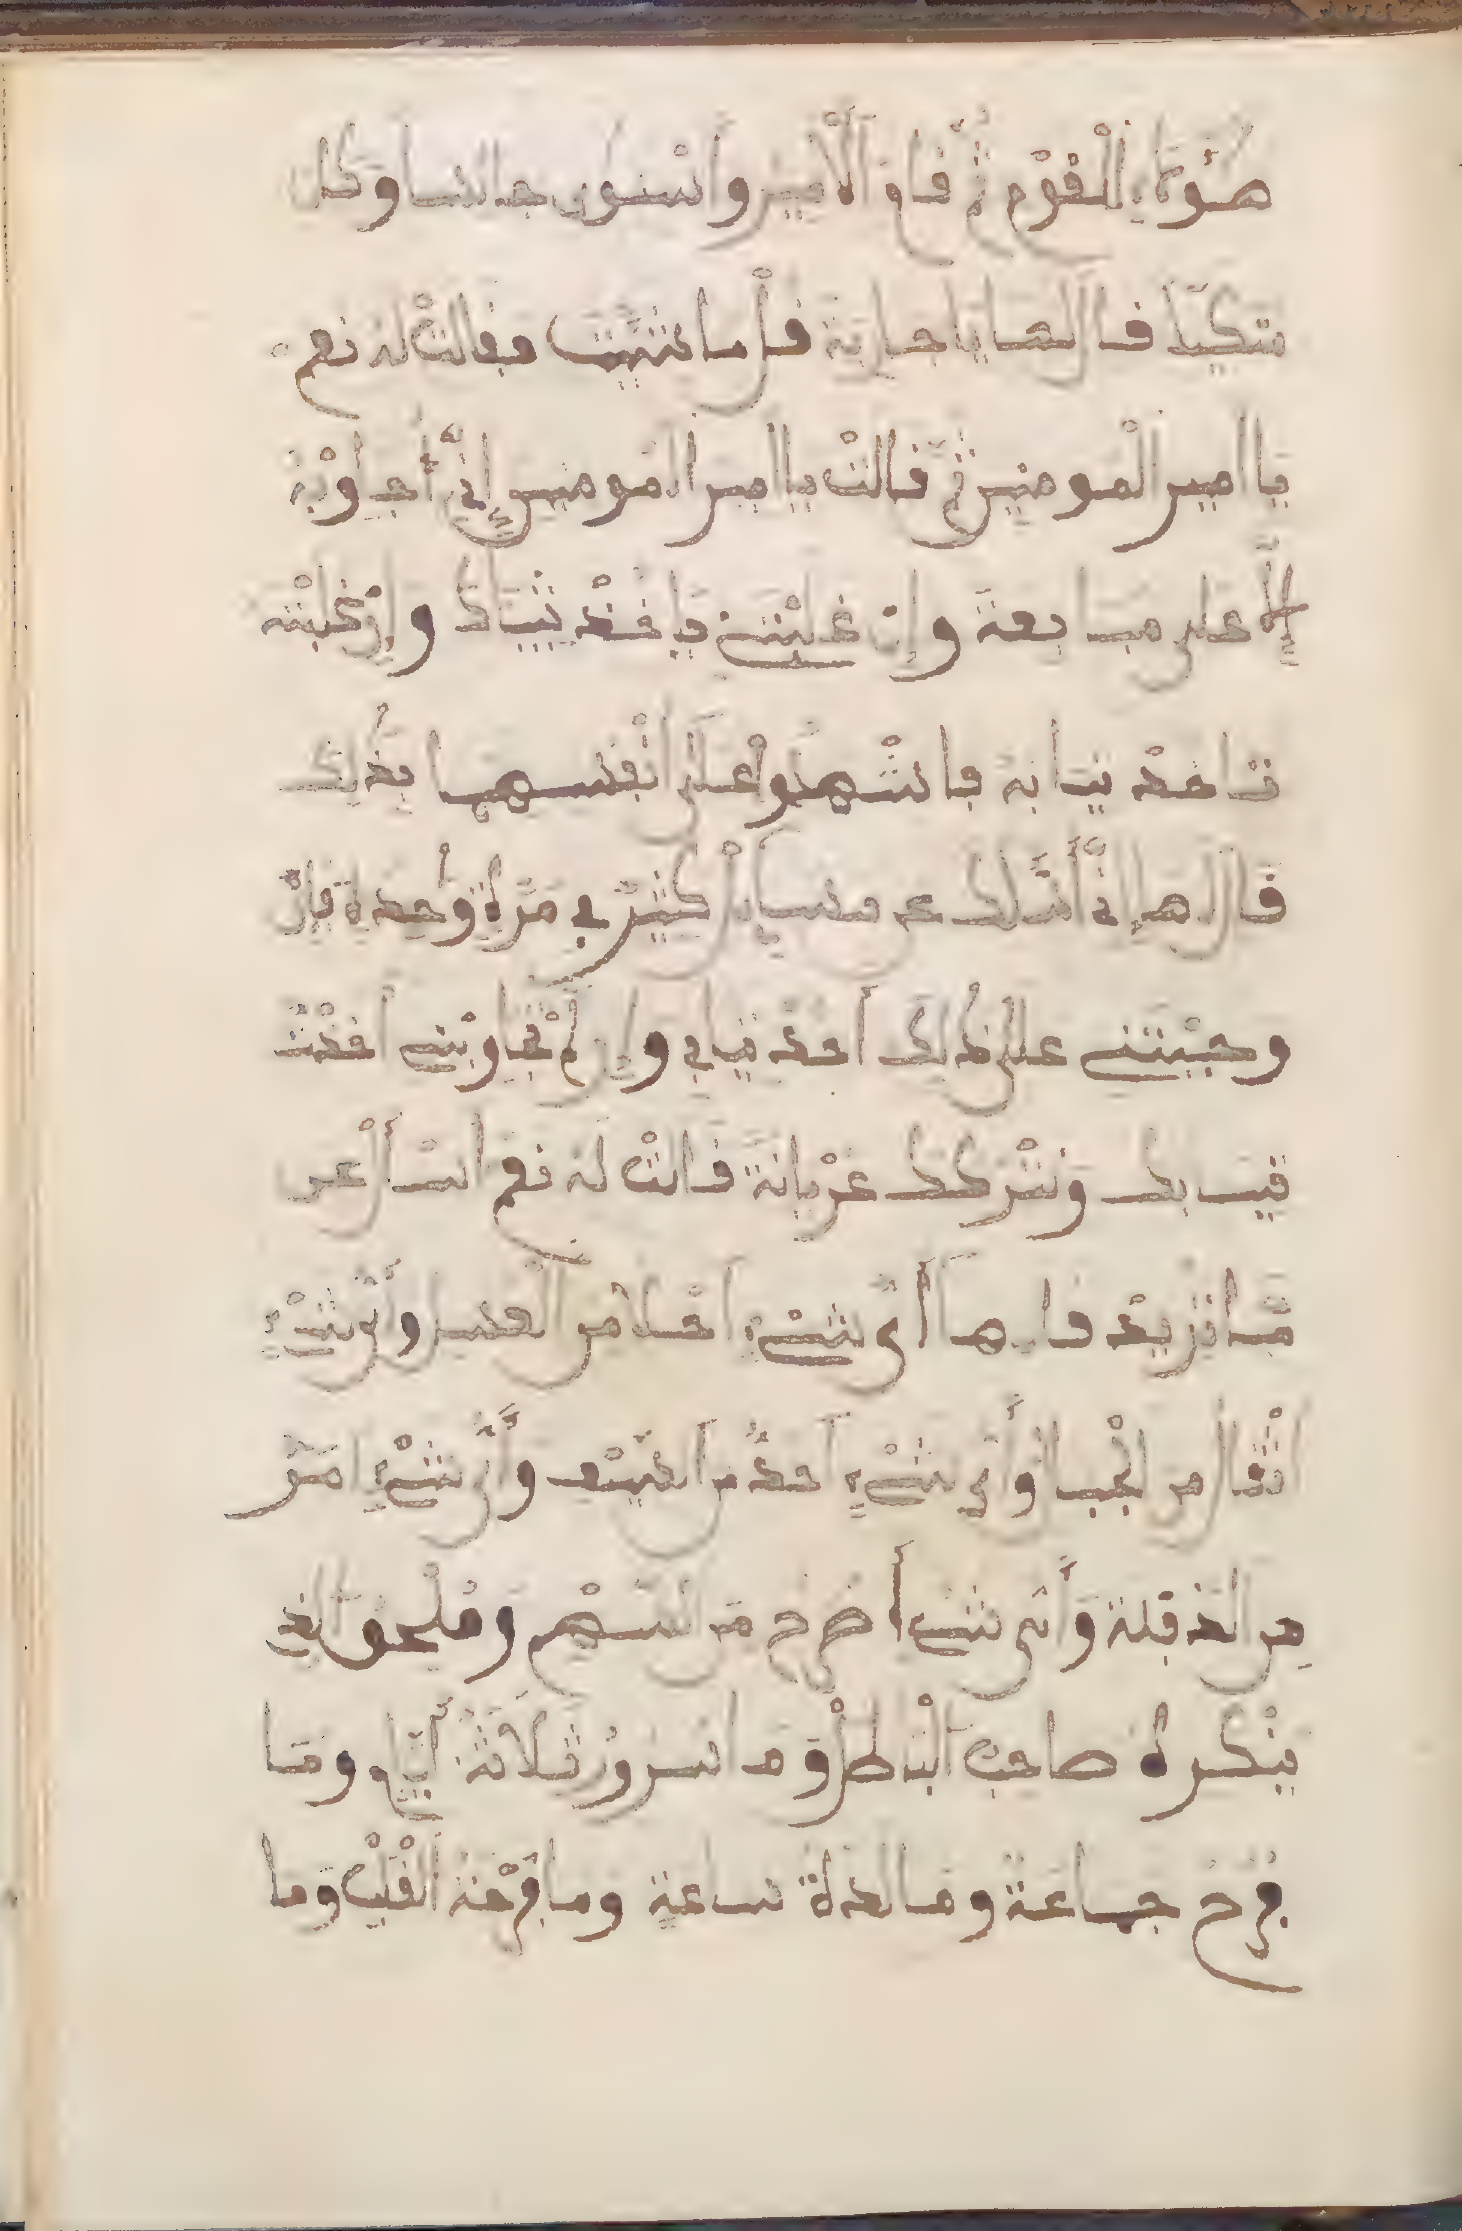 هؤلاء القوم ثم قام الأمير واستوى جالسا وكان
متكيا فال لها يا جارية فلما شيت ففالت له نعم
يا امير المومنين ثم فالت يا امير المومنين إني أجاوبه
إلا على مبايعة وإن غلبتني ياخذ ثيابي وإن غلبته
ناخذ ثيابه فاشهدوا على أنفسهما بذلك
فال لها إني أسئلك عن مسايل كثير في مرة واحدة فإن
وجبتني على ذلك أخذت ثيابي وإن لم تجاوبني أخذت
ثيابك ونتركك عريانة فالت له نعم اسأل عن
ما تريد فال لها أي شيء احلا من العسل وأي شيء
اثفال من الجبال وأي شيء احد من السيف وأي شيء امر
من الدفلة وأي شيء أخرج من السهم وملحق الذي
ينكره صاحب الباطل وما سرور ثلاثة أيام وما
فرح جماعة وما لذاة ساعة وما فرحة القلب وما